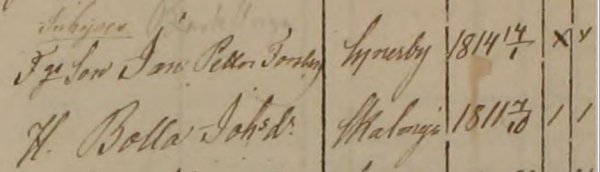 Inhyses
Fgr Son Jan Petter Forsberg Lynerby 1814 14/1 X v
H. Bolla Johs dr Skalmyra 1811 7/10 1 1